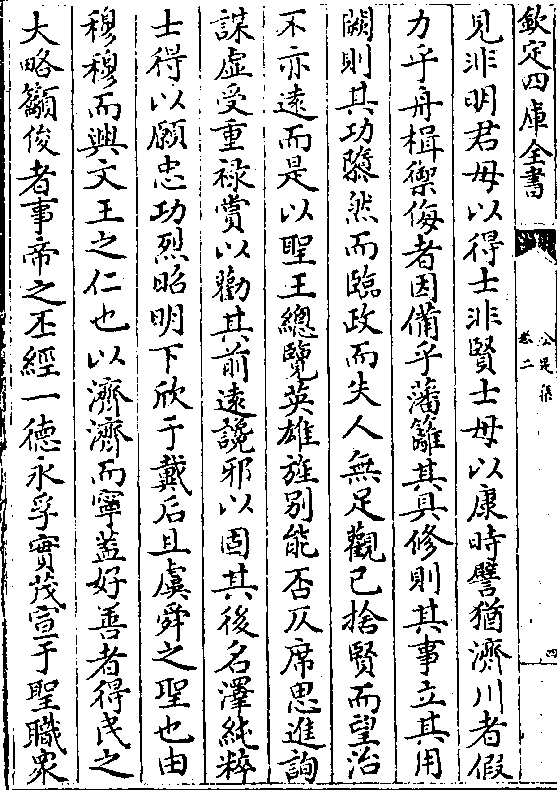 欽定四庫全書
公是集
卷二
四
見非明君毋以得士非賢士毋以康時譬猶濟川者假
力乎舟楫禦侮者因備乎藩籬其具修則其事立其用
闕則其功隳然而臨政而失人無足觀已捨賢而望治
不亦遠而是以聖王總覽英雄旌別能否仄席思進詢
謀虛受重祿賞以勸其前遠讒邪以固其後名澤純粹
士得以願忠功烈昭明下欣于戴后且虞舜之聖也由
穆穆而興文王之仁也以濟濟而寧蓋好善者得民之
大略籲俊者事帝之丕經一德永孚實茂宣于聖職衆